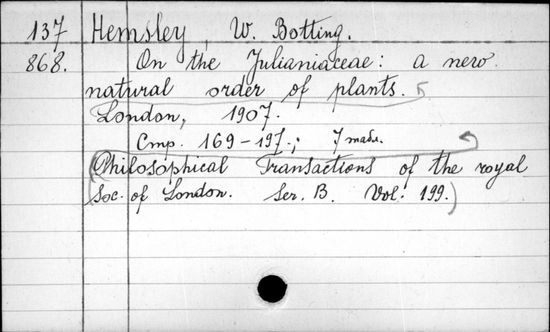 137 Hemsley, W. Botting.
868. On the Julianiaceae: a new
natural order of plants.
London, 1907.
Cmp. 169-197.; 7 табл.
(Philosophical Transactions of the royal
Soc. of London. Ser. B. Vol: 199.)